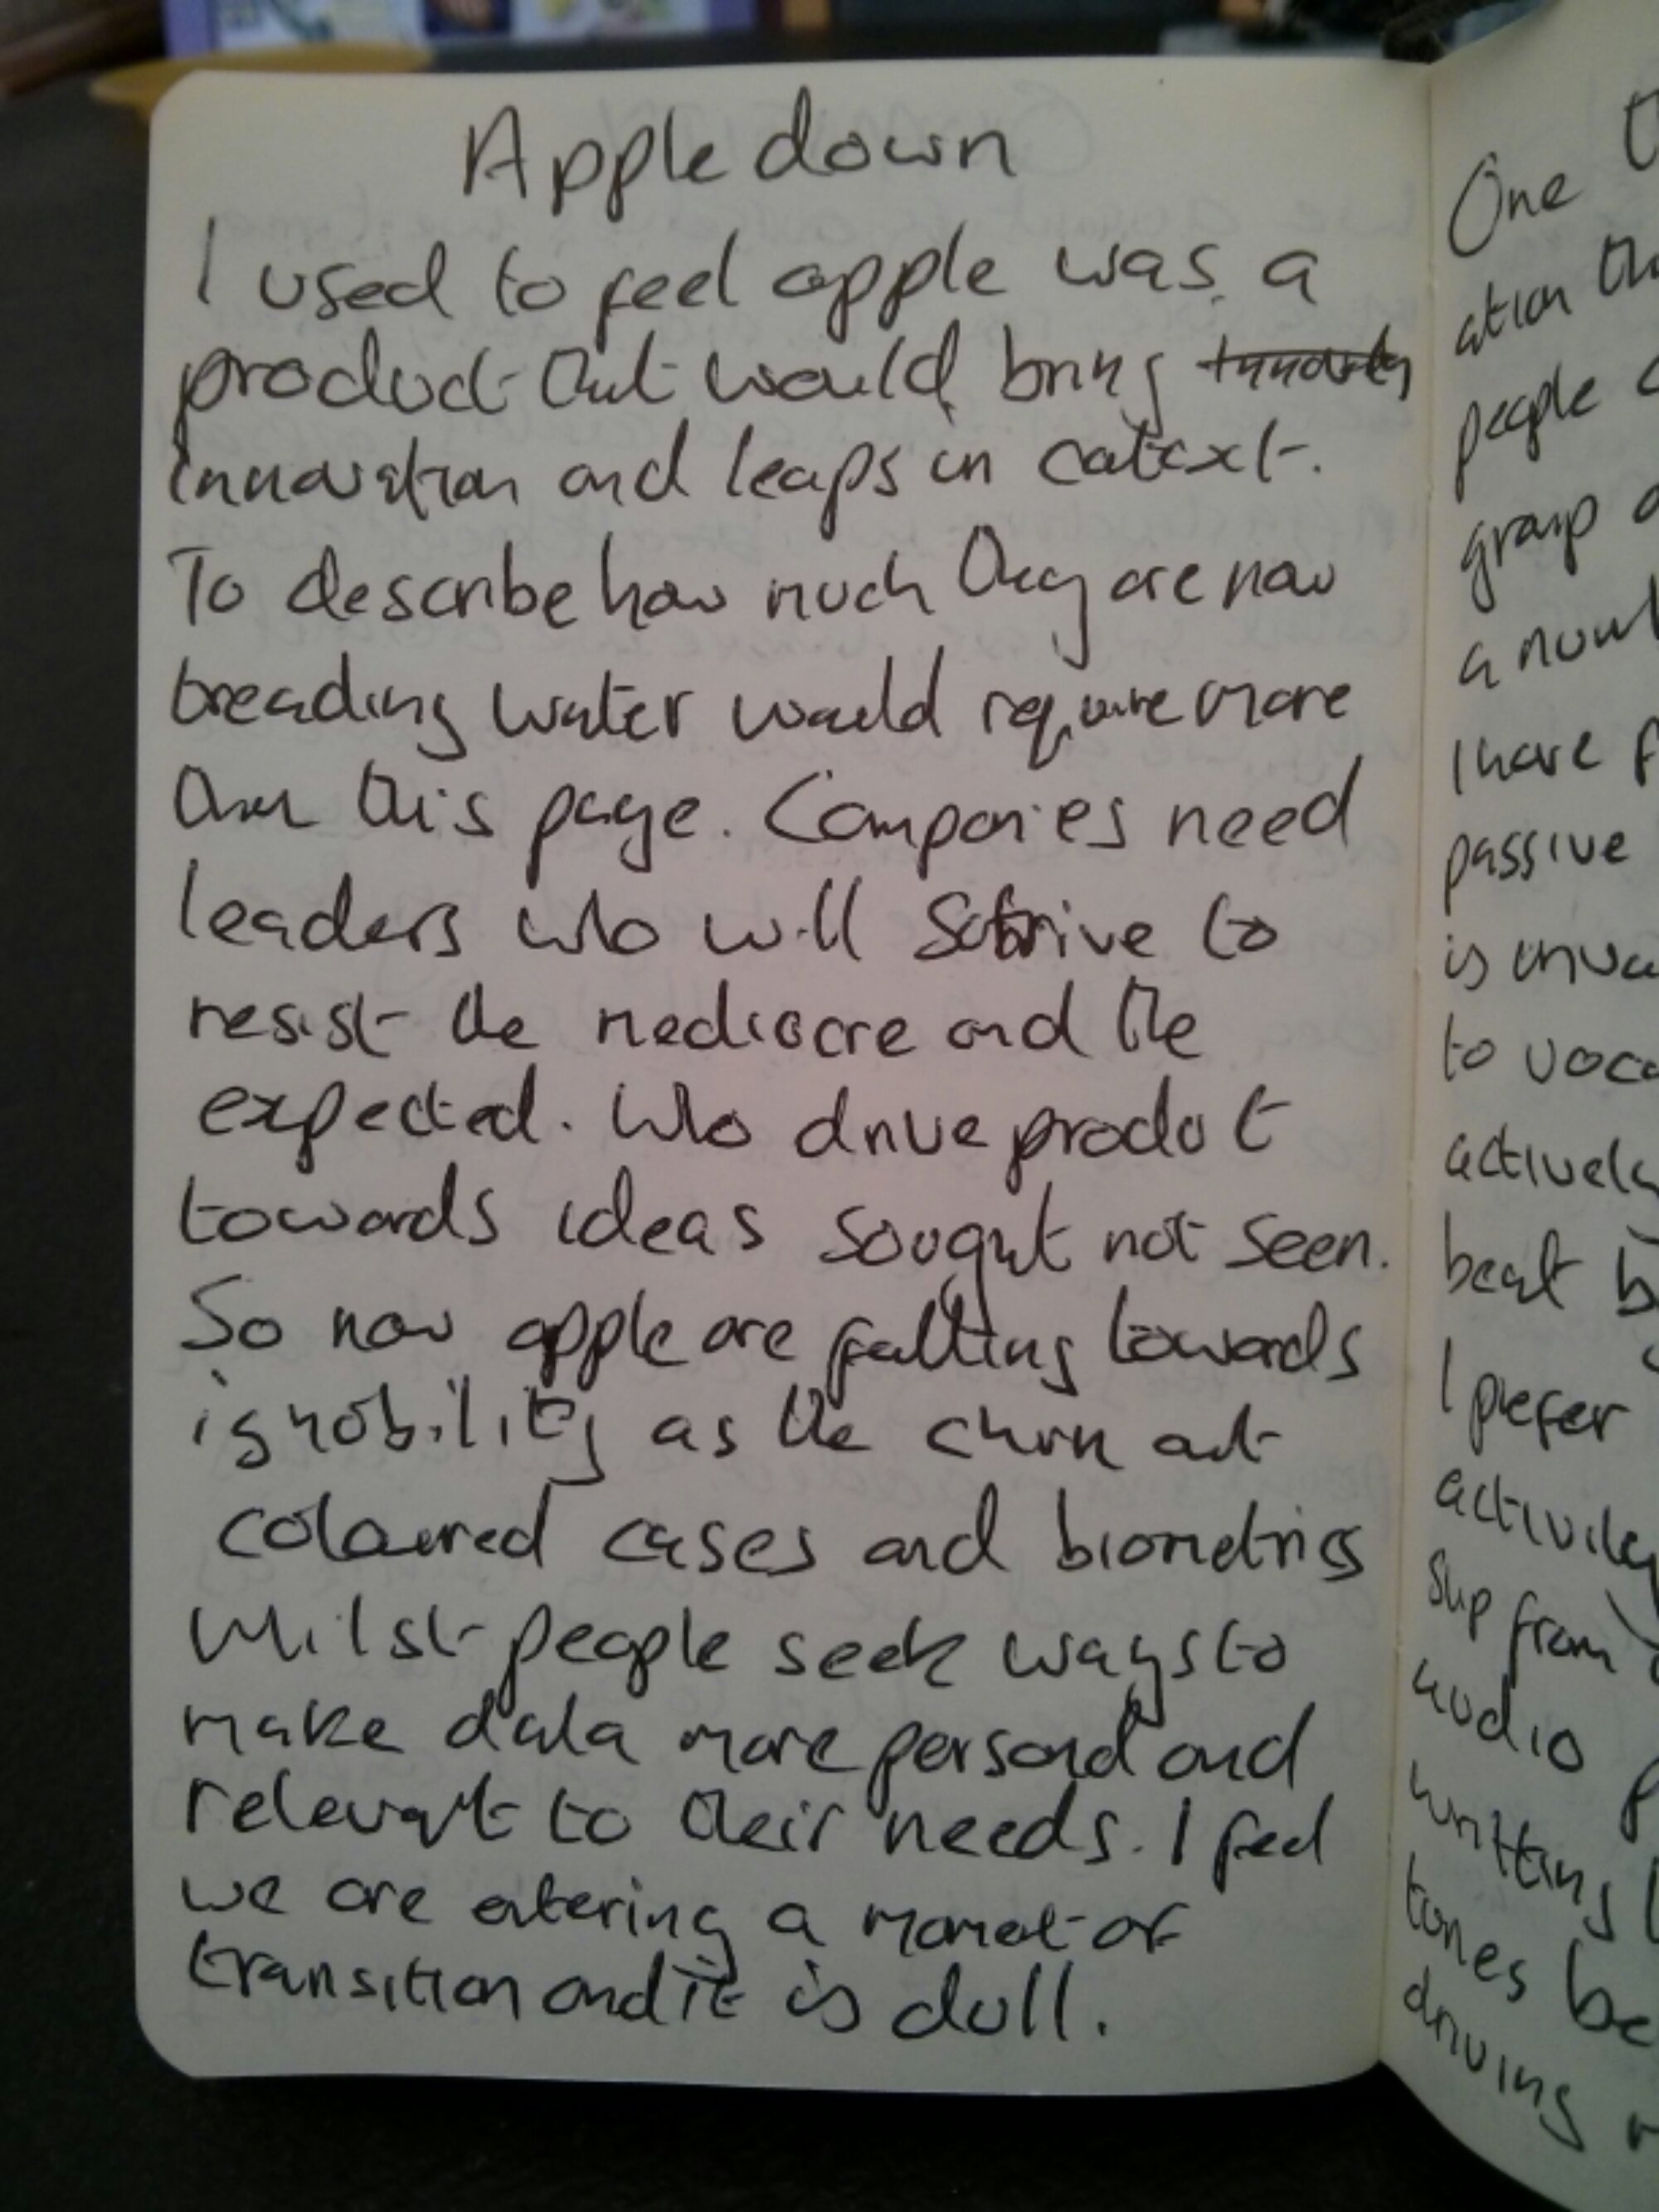 Apple down
I used to feel apple was a
product that would bring
innovation and leaps in context.
To describe how much they are now
treading water would require more
than this page. Companies need
leaders who will strive to
resist the mediocre and the
expected. Who drive product
towards ideas sought not seen.
So now apple are falling towards
ignobility as the churn out
coloured cases and biometrics
whilst people seek ways to
make data more personal and
relevant to their needs. I feel
we are entering a moment of
transition and it is dull.
One
ation
people
group
a
I have
passive
is
to
actively
beat
I prefer
activity
slip from
audio
writting
tones
driving